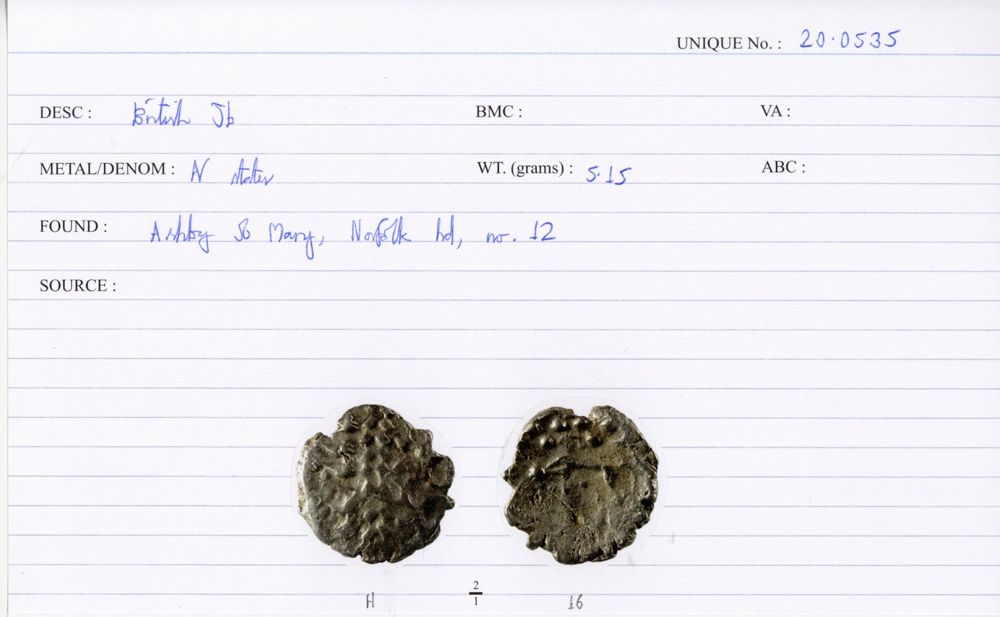 UNIQUE No. : 20·0535
DESC : British Jb BMC : VA :
METAL/DENOM : N stater WT. (grams) : 5·15 ABC :
FOUND : Ashby St Mary, Norfolk hd, no. 12
SOURCE :
H 2/1 16